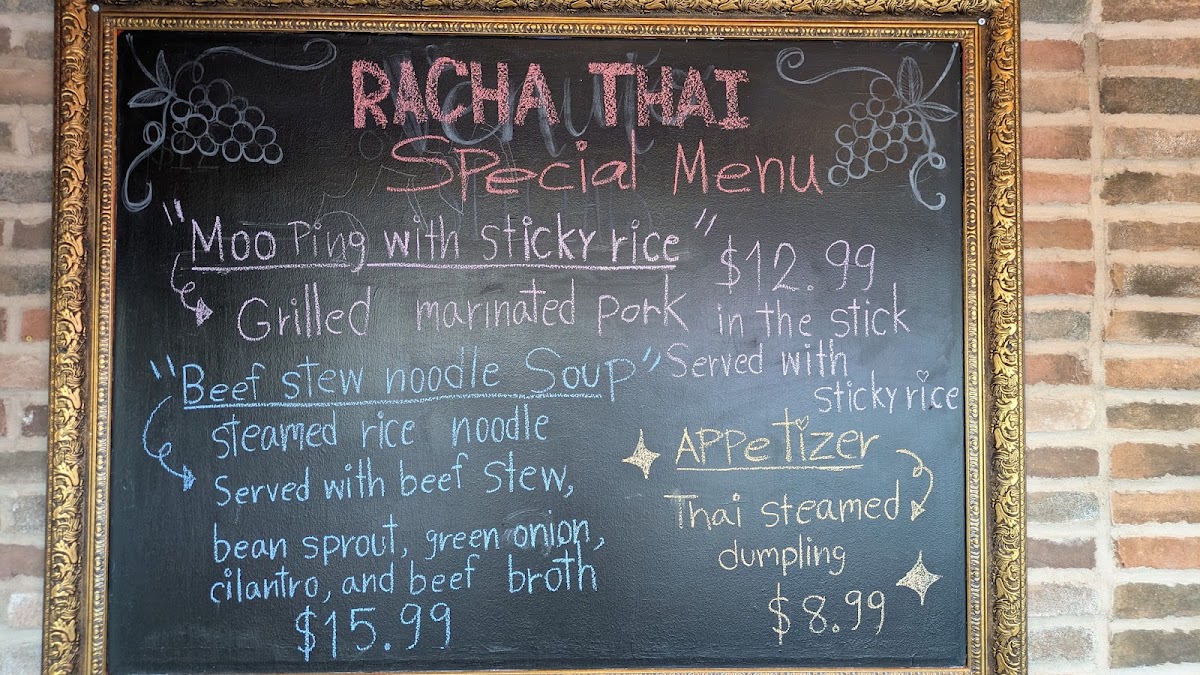 RACHA THAI
Special Menu
"Moo Ping with sticky rice" $12.99
Grilled marinated pork in the stick
Served with
sticky rice
"Beef stew noodle Soup"
steamed rice noodle
Served with beef stew,
bean sprout, green onion,
cilantro, and beef broth
$15.99
APPeTizer
Thai steamed
dumpling
$8.99